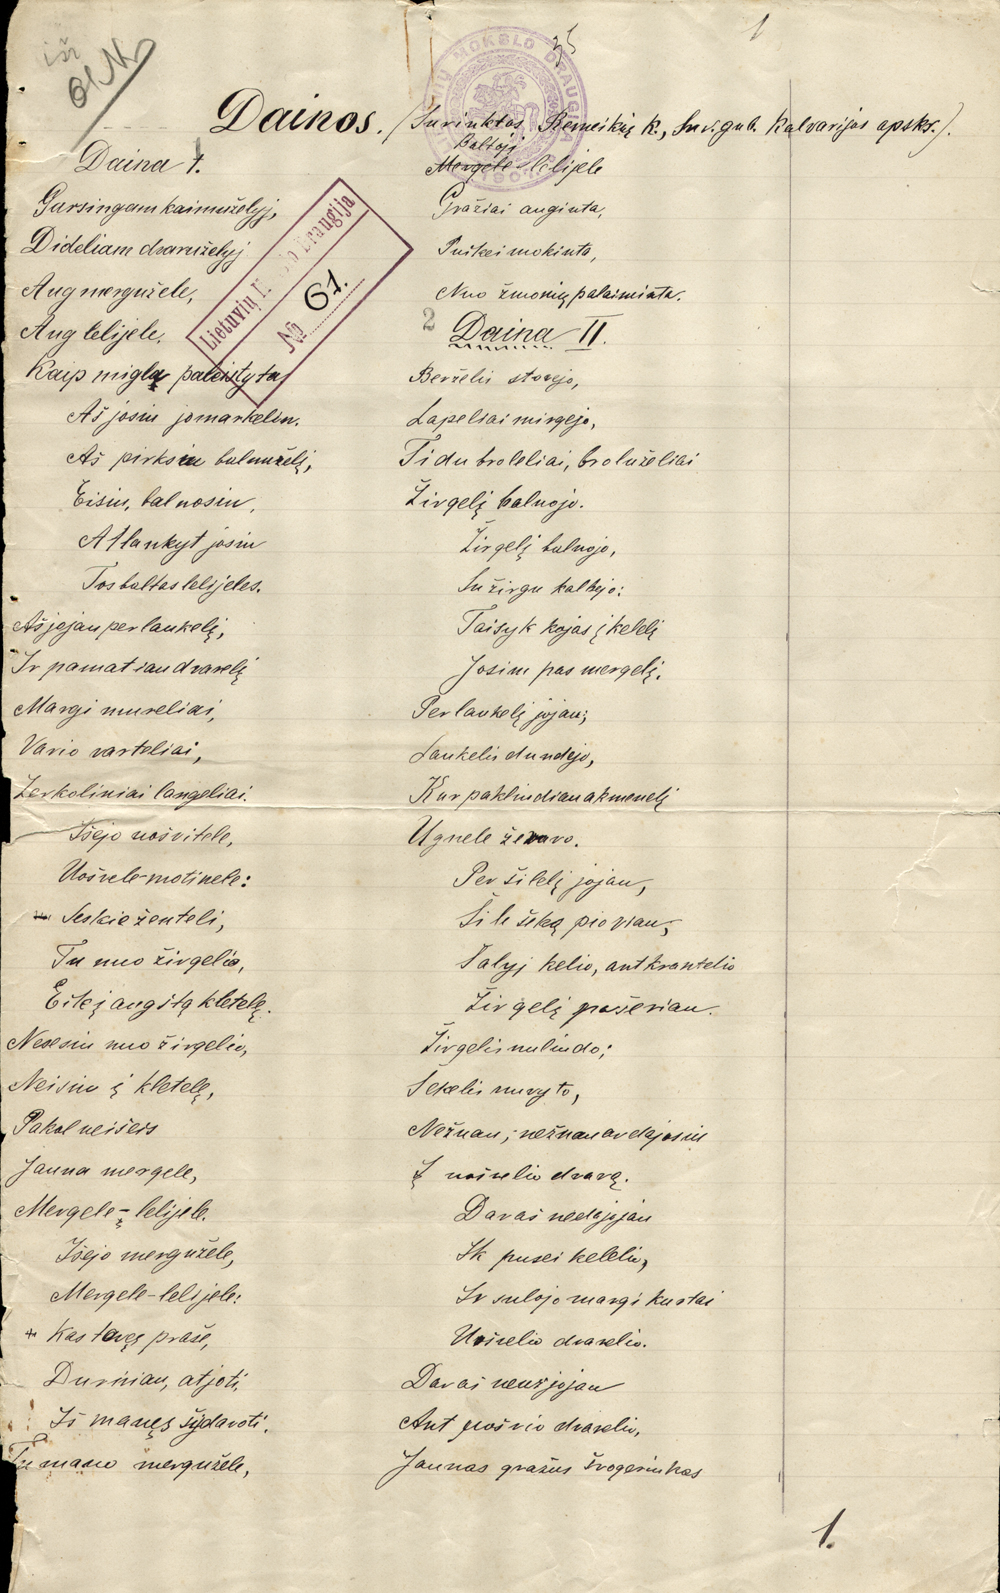 1
Dainos. (Surinktos Remeikių k., Suv. gub. Kalvarijos apskr.).
Daina 1.
Garsingam kaimužėlyj,
Dideliam dvaružėlyj
Aug mergužėlė,
Aug lelijėlė.
Kaip migla paleistyta
Aš josiu jomarkėlin.
Aš pirksiu balnužėlį,
Eisiu, balnosiu,
Atlankyt josiu
Tos baltos lelijėlės.
Aš jojau per laukelį,
Ir pamačiau dvarelį
Margi mureliai,
Vario varteliai,
Zerkoliniai langeliai.
Išėjo uošvitėlė,
Uošvelė-motinėlė:
Seskie ženteli,
Tu nuo žirgelio,
Eik į augštą kletelę.
Nesėsiu nuo žirgelio,
Neisiu į kletelę,
Pakol neišeis
Jauna mergelė,
Mergelė-lelijėlė.
Išėjo mergužėlė,
Mergelė-lelijėlė:
+ Kas tavęs prašė,
Durniau, atjoti,
Iš manęs šydavoti.
Tu mano mergužėlė,
Baltoji
Mergelė-lelijėlė
Gražiai auginta,
Puikei mokinta,
Nuo žmonių palaiminta.
2 Daina II.
Berželis stovėjo,
Lapeliai mirgėjo,
Ti du broleliai, brolužėliai
Žirgelį balnojo.
Žirgelį balnojo,
Su žirgu kalbėjo:
Taisyk kojas į kelelį
Josim pas mergelę.
Per laukelį jojau,
Laukelis dundėjo,
Kur pakliudžiau akmenelį
Ugnelė žeravo.
Per šilelį jojau,
Šile šėką pioviau,
Šalyj kelio, ant krantelio
Žirgelį pašeriau.
Žirgelis nuliudo,
Šėkelis nuvyto,
Nežnau, nežnau ar dajosiu
Į uošvelio dvarą.
Dar aš nedajojau
Ik pusei kelelio,
Ir sulojo margi kurtai
Uošvelio dvarelio.
Dar aš neužjojau
Ant uošvio dvarelio,
Jaunas gražus švogeriukas
Lietuvių Mokslo Draugija
№ 61.
1.